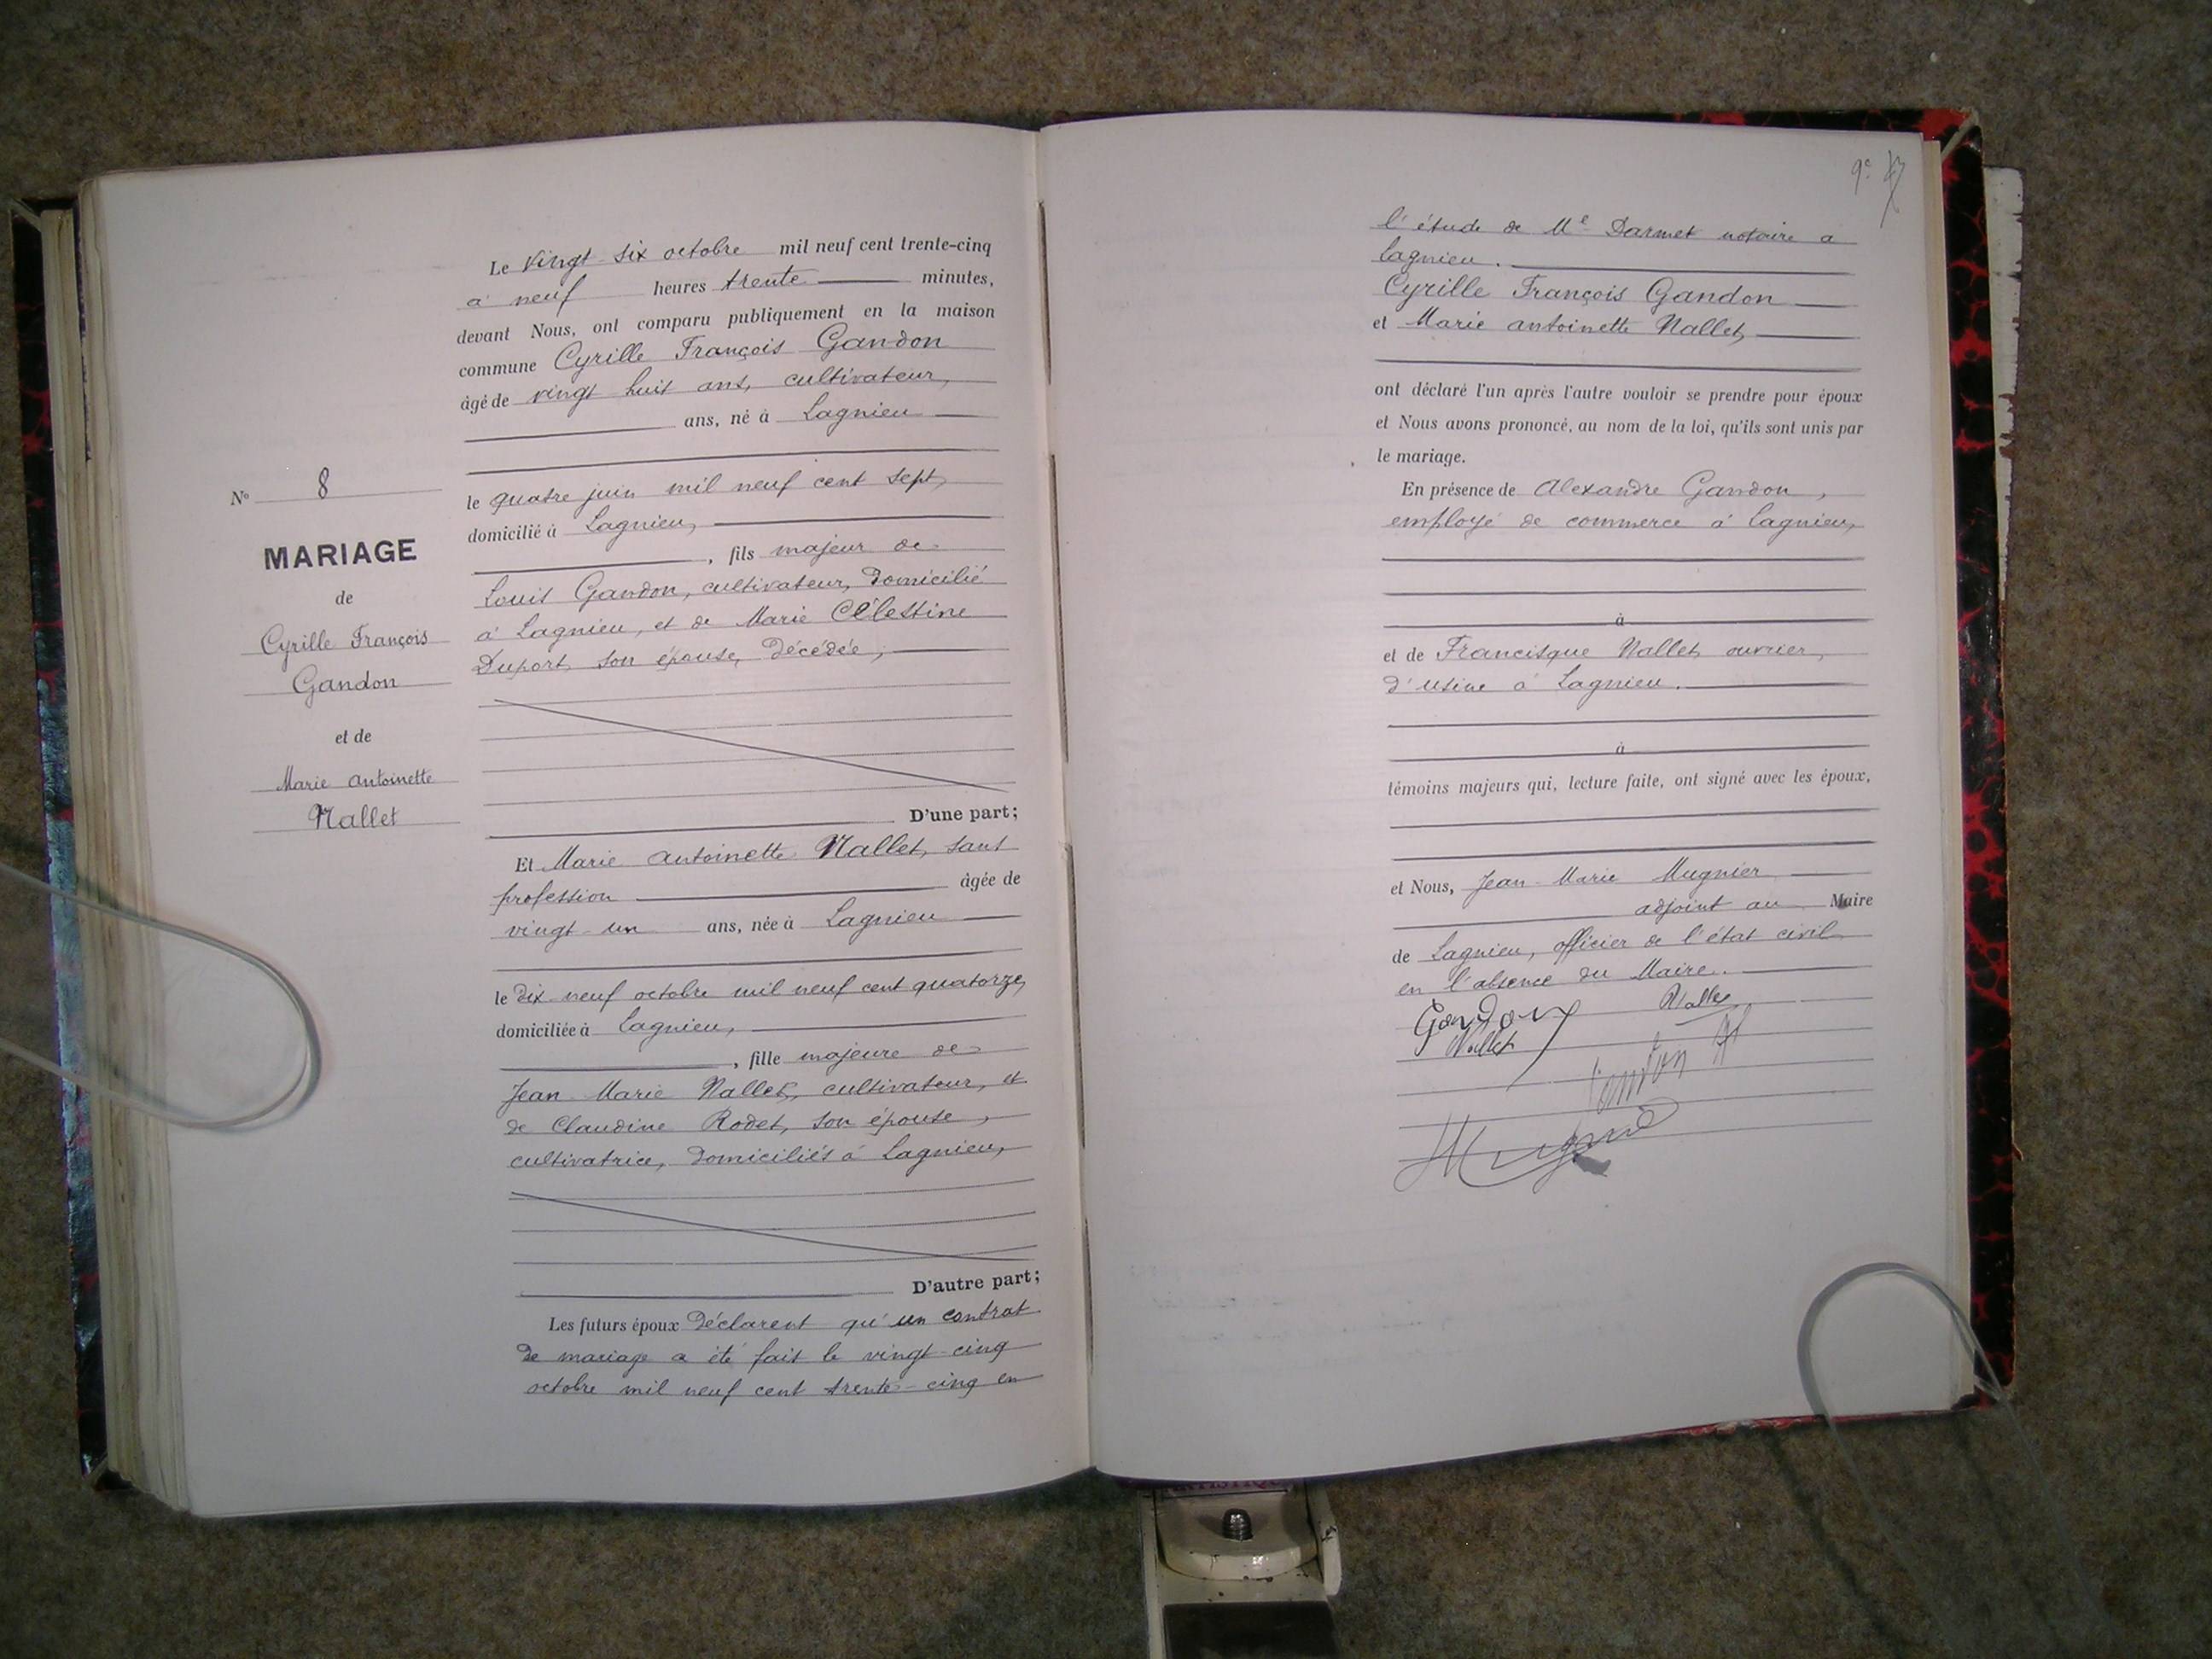 N° 8
MARIAGE
de
Cyrille François
Gandon
et de
Marie antoinette
Nallet
Le vingt-six octobre mil neuf cent trente-cinq
à neuf heures trente minutes,
devant Nous, ont comparu publiquement en la maison
commune Cyrille François Gandon
âgé de vingt huit ans, cultivateur,
ans, né à Lagnieu
le quatre juin mil neuf cent sept,
domicilié à Lagnieu,
, fils majeur de
Louis Gandon, cultivateur, domicilié
à Lagnieu, et de Marie Célestine
Duport, son épouse, décédée,
D'une part;
Et Marie antoinette Nallet, sans
profession âgée de
vingt-un ans, née à Lagnieu
le dix-neuf octobre mil neuf cent quatorze,
domiciliée à Lagnieu,
, fille majeure de
Jean-Marie Nallet, cultivateur, et
de Claudine Rodet, son épouse,
cultivatrice, domiciliés à Lagnieu,
D'autre part;
Les futurs époux déclarent qu'un contrat
de mariage a été fait le vingt-cinq
octobre mil neuf cent trente-cinq en
9e
l'étude de Me Darmet notaire a
Lagnieu.
Cyrille François Gandon
et Marie antoinette Nallet,
ont déclaré l'un après l'autre vouloir se prendre pour époux
et Nous avons prononcé, au nom de la loi, qu'ils sont unis par
le mariage.
En présence de Alexandre Gandon,
employé de commerce à Lagnieu,
à
et de Francisque Nallet, ouvrier,
d'usine à Lagnieu.
à
témoins majeurs qui, lecture faite, ont signé avec les époux,
et Nous, Jean-Marie Mugnier
adjoint au Maire
de Lagnieu, officier de l'état civil
en l'absence du Maire.
Gandon Nallet
Nallet
Gandon
Mugnier